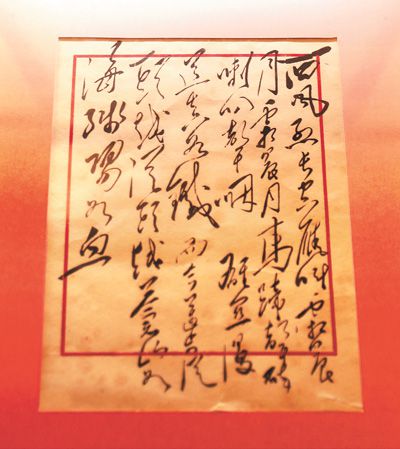 西風烈長空雁叫霜晨
月霜晨月馬蹄聲碎
喇叭聲咽 雄關漫
道真如鐵 而今邁步從
頭越從頭越蒼山如
海殘陽如血